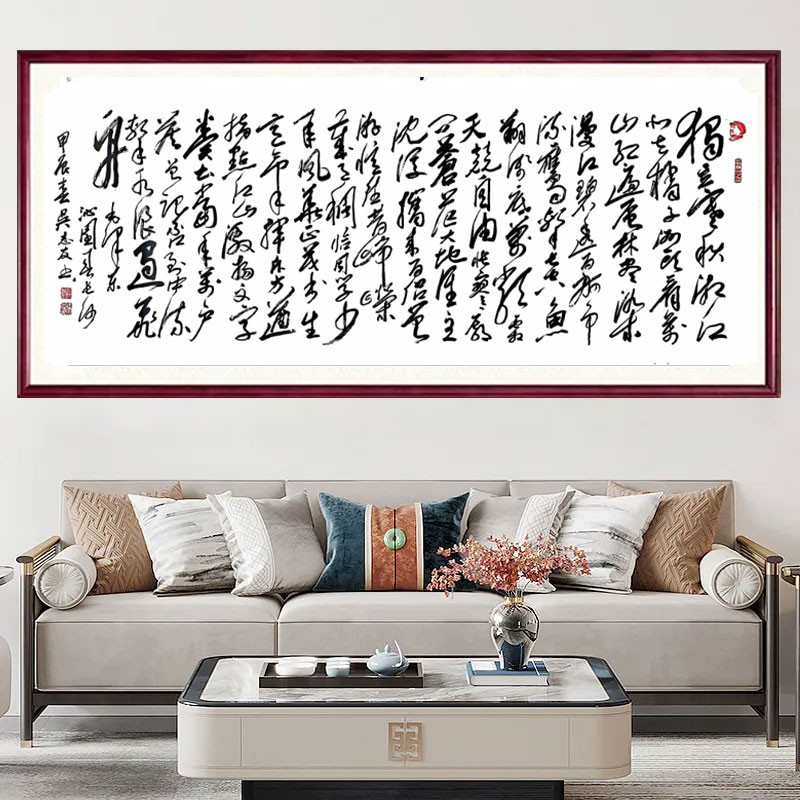 獨立寒秋湘江
北去橘子洲頭看萬
山红遍层林尽染
漫江碧透百舸争
流鹰擊长空魚
翔浅底萬類霜
天競自由怅寥廓
问蒼茫大地谁主
沉浮携来百侣曾
游忆往昔峥嵘
岁月稠恰同学少
年风華正茂书生
意气挥斥方遒
指點江山激扬文字
粪土當年萬户
侯曾记否到中流
擊水浪遏飛
舟 毛泽东
沁園春长沙
甲辰春吴志友书